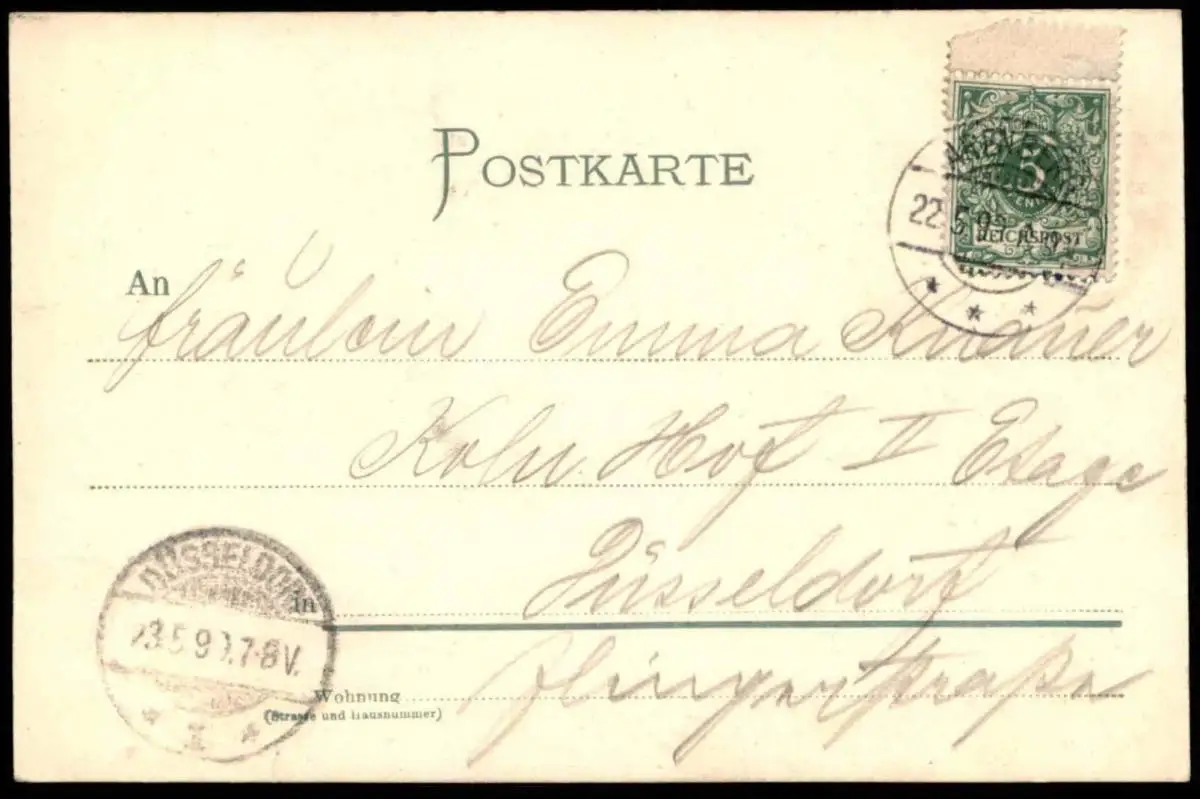 POSTKARTE
5
REICHSPOST
22.5.9
An Fräulein Emma Knauer
Köln. Hof II Etage
DÜSSELDORF
23.5.9 .7-8V.
in Düsseldorf
Wohnung Flingerstraße
(Strasse und Hausnummer)